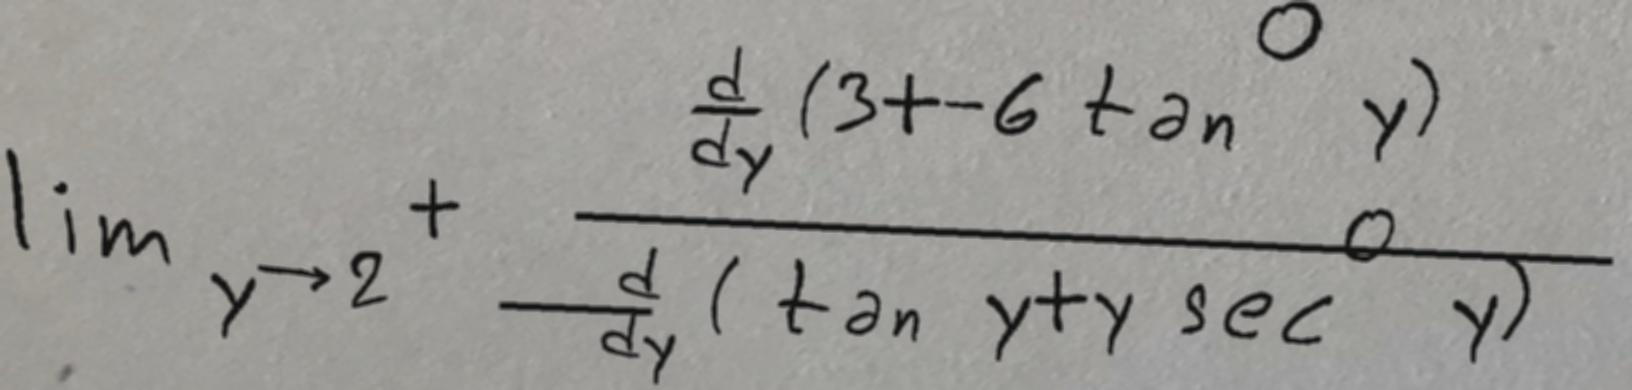 \lim_{y \to 2^+} \frac{\frac{d}{dy}(3+-6\tan^0 y)}{\frac{d}{dy}(\tan y+y\sec^0 y)}